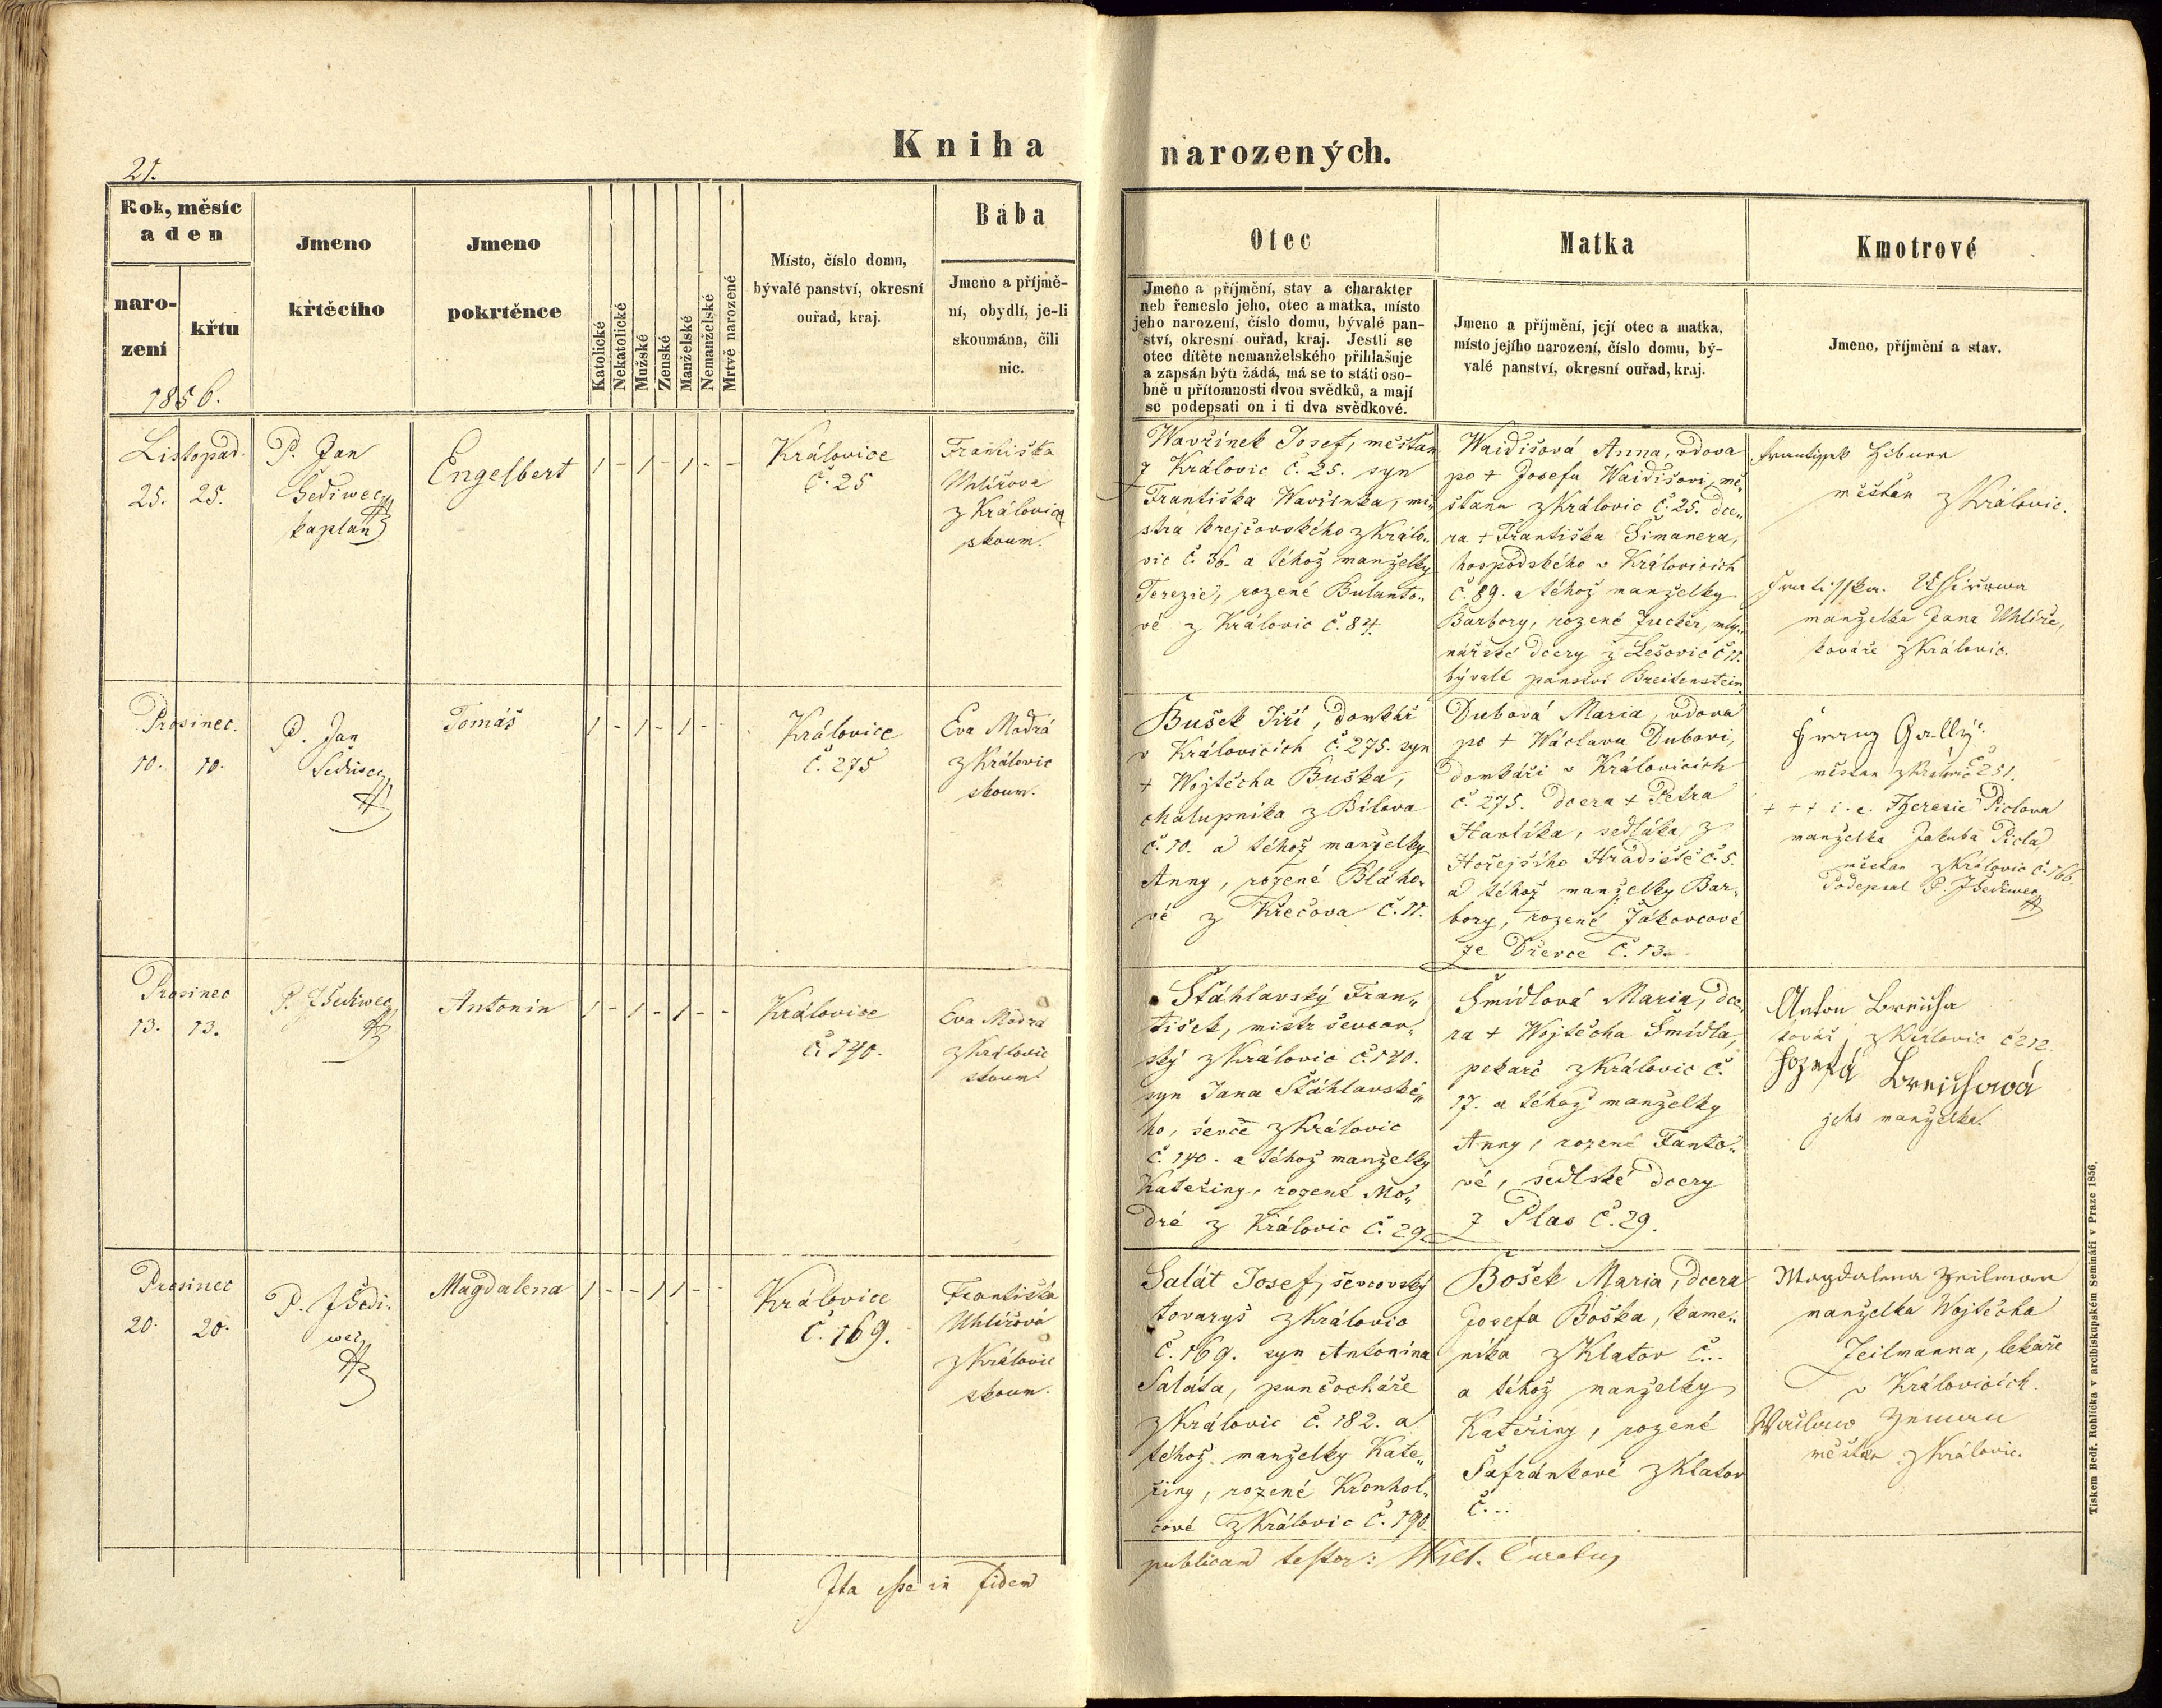 Kniha narozených.
21.
Rok, měsíc
a den
naro-
zení
křtu
1856.
Jmeno
křtěcího
Jmeno
pokrtěnce
Katolické
Nekatolické
Mužské
Ženské
Manželské
Nemanželské
Mrtvě narozené
Místo, číslo domu,
bývalé panství, okresní
ouřad, kraj.
Bába
Jmeno a příjmě-
ní, obydlí, je-li
skoumána, čili
nic.
Otec
Jmeno a příjmění, stav a charakter
neb řemeslo jeho, otec a matka, místo
jeho narození, číslo domu, bývalé pan-
ství, okresní ouřad, kraj. Jestli se
otec dítěte nemanželského přihlašuje
a zapsán býti žádá, má se to státi oso-
bně u přítomnosti dvou svědků, a mají
se podepsati on i ti dva svědkové.
Matka
Jmeno a příjmění, její otec a matka,
místo jejího narození, číslo domu, bý-
valé panství, okresní ouřad, kraj.
Kmotrové
Jmeno, příjmění a stav.
Listopad.
25. 25.
P. Jan
Šediwec
kaplan
Engelbert
1 - 1 - 1 - -
Královice
č. 25
Františka
Uhlířova
z Králowic
skoum.
Wavřinek Josef, měšťan
z Královic č. 25. syn
Františka Wavřinka, mi-
stra krejčovského z Králo-
vic č. 36. a téhož manželky
Terezie, rozené Bulanto-
vé z Královic č. 84.
Waidišová Anna, vdova
po + Josefu Waidišovi, mě-
šťanu z Královic č. 25. dce-
ra + Františka Šimanera,
hospodského v Královicích
č. 89. a téhož manželky
Barbory, rozené Zucker, mly-
nářské dcery z Lešovic č. 11.
bývalé panství Breitenstein
měšťan z Královic.
manželka Jana Uhlíře,
kováře z Královic.
Prosinec.
10. 10.
P. Jan
Šediwec
Tomáš
1 - 1 - 1 - -
Královice
č. 275
Eva Modrá
z Královic
skoum.
Bušek Jiří, domkář
v Královicích č. 275. syn
+ Wojtěcha Buška,
chalupníka z Bílova
č. 10. a téhož manželky
Anny, rozené Bláho-
vé z Křečova č. 11.
Dubová Maria, vdova
po + Wáclavu Dubovi,
domkáři v Královicích
č. 275. dcera + Petra
Havlíka, sedláka z
Hořejšího Hradiště č. 5.
a téhož manželky Bar-
bory, rozené Žákovcové
ze Dřevce č. 13.
Franz Gally
měšťan z Královic č 251.
+ + + i. e. Theresie Piclova
manželka Jakuba Picla
měšťan z Královic č. 166.
Podepsal P. J Šediwec
Prosinec
13. 13.
P. J Šediwec
Antonin
1 - 1 - 1 - -
Královice
č. 140.
Eva Modrá
z Královic
skoum.
Šťáhlavský Fran-
tišek, mistr ševcov-
ský z Královic č. 140.
syn Jana Šťáhlavské-
ho, ševče z Královic
č. 140. a téhož manželky
Kateřiny, rozené Mo-
dré z Královic č. 29.
Šmídlová Maria, dce-
ra + Wojtěcha Šmídla,
pekaře z Královic č.
17. a téhož manželky
Anny, rozené Fanto-
vé, sedlské dcery
z Plas č. 29.
Anton Breicha
kovář z Královic č 212.
Jozefa Breichová
jeho manželka.
Prosinec
20. 20.
P. J Šedi-
wec
Magdalena
1 - - 1 1 - -
Královice
č. 169.
Františka
Uhlířová
z Králowic
skoum.
Salát Josef, ševcovský
tovaryš z Královic
č. 169. syn Antonína
Saláta, punčocháře
z Královic č. 182. a
téhož manželky Kate-
řiny, rozené Kronhol-
cové z Královic č. 190.
Bošek Maria, dcera
Josefa Boška, kame-
níka z Klatov č...
a téhož manželky
Kateřiny, rozené
Šafránkové z Klatov
č...
Magdalena Zeilman
manželka Wojtěcha
Zeilmanna, lekaře
v Královicích.
Waclaw Zeman
měšťan z Královic.
Ita esse in fidem
publicam testor:
Tiskem Bedř. Rohlíčka v arcibiskupském Semináři v Praze 1856.